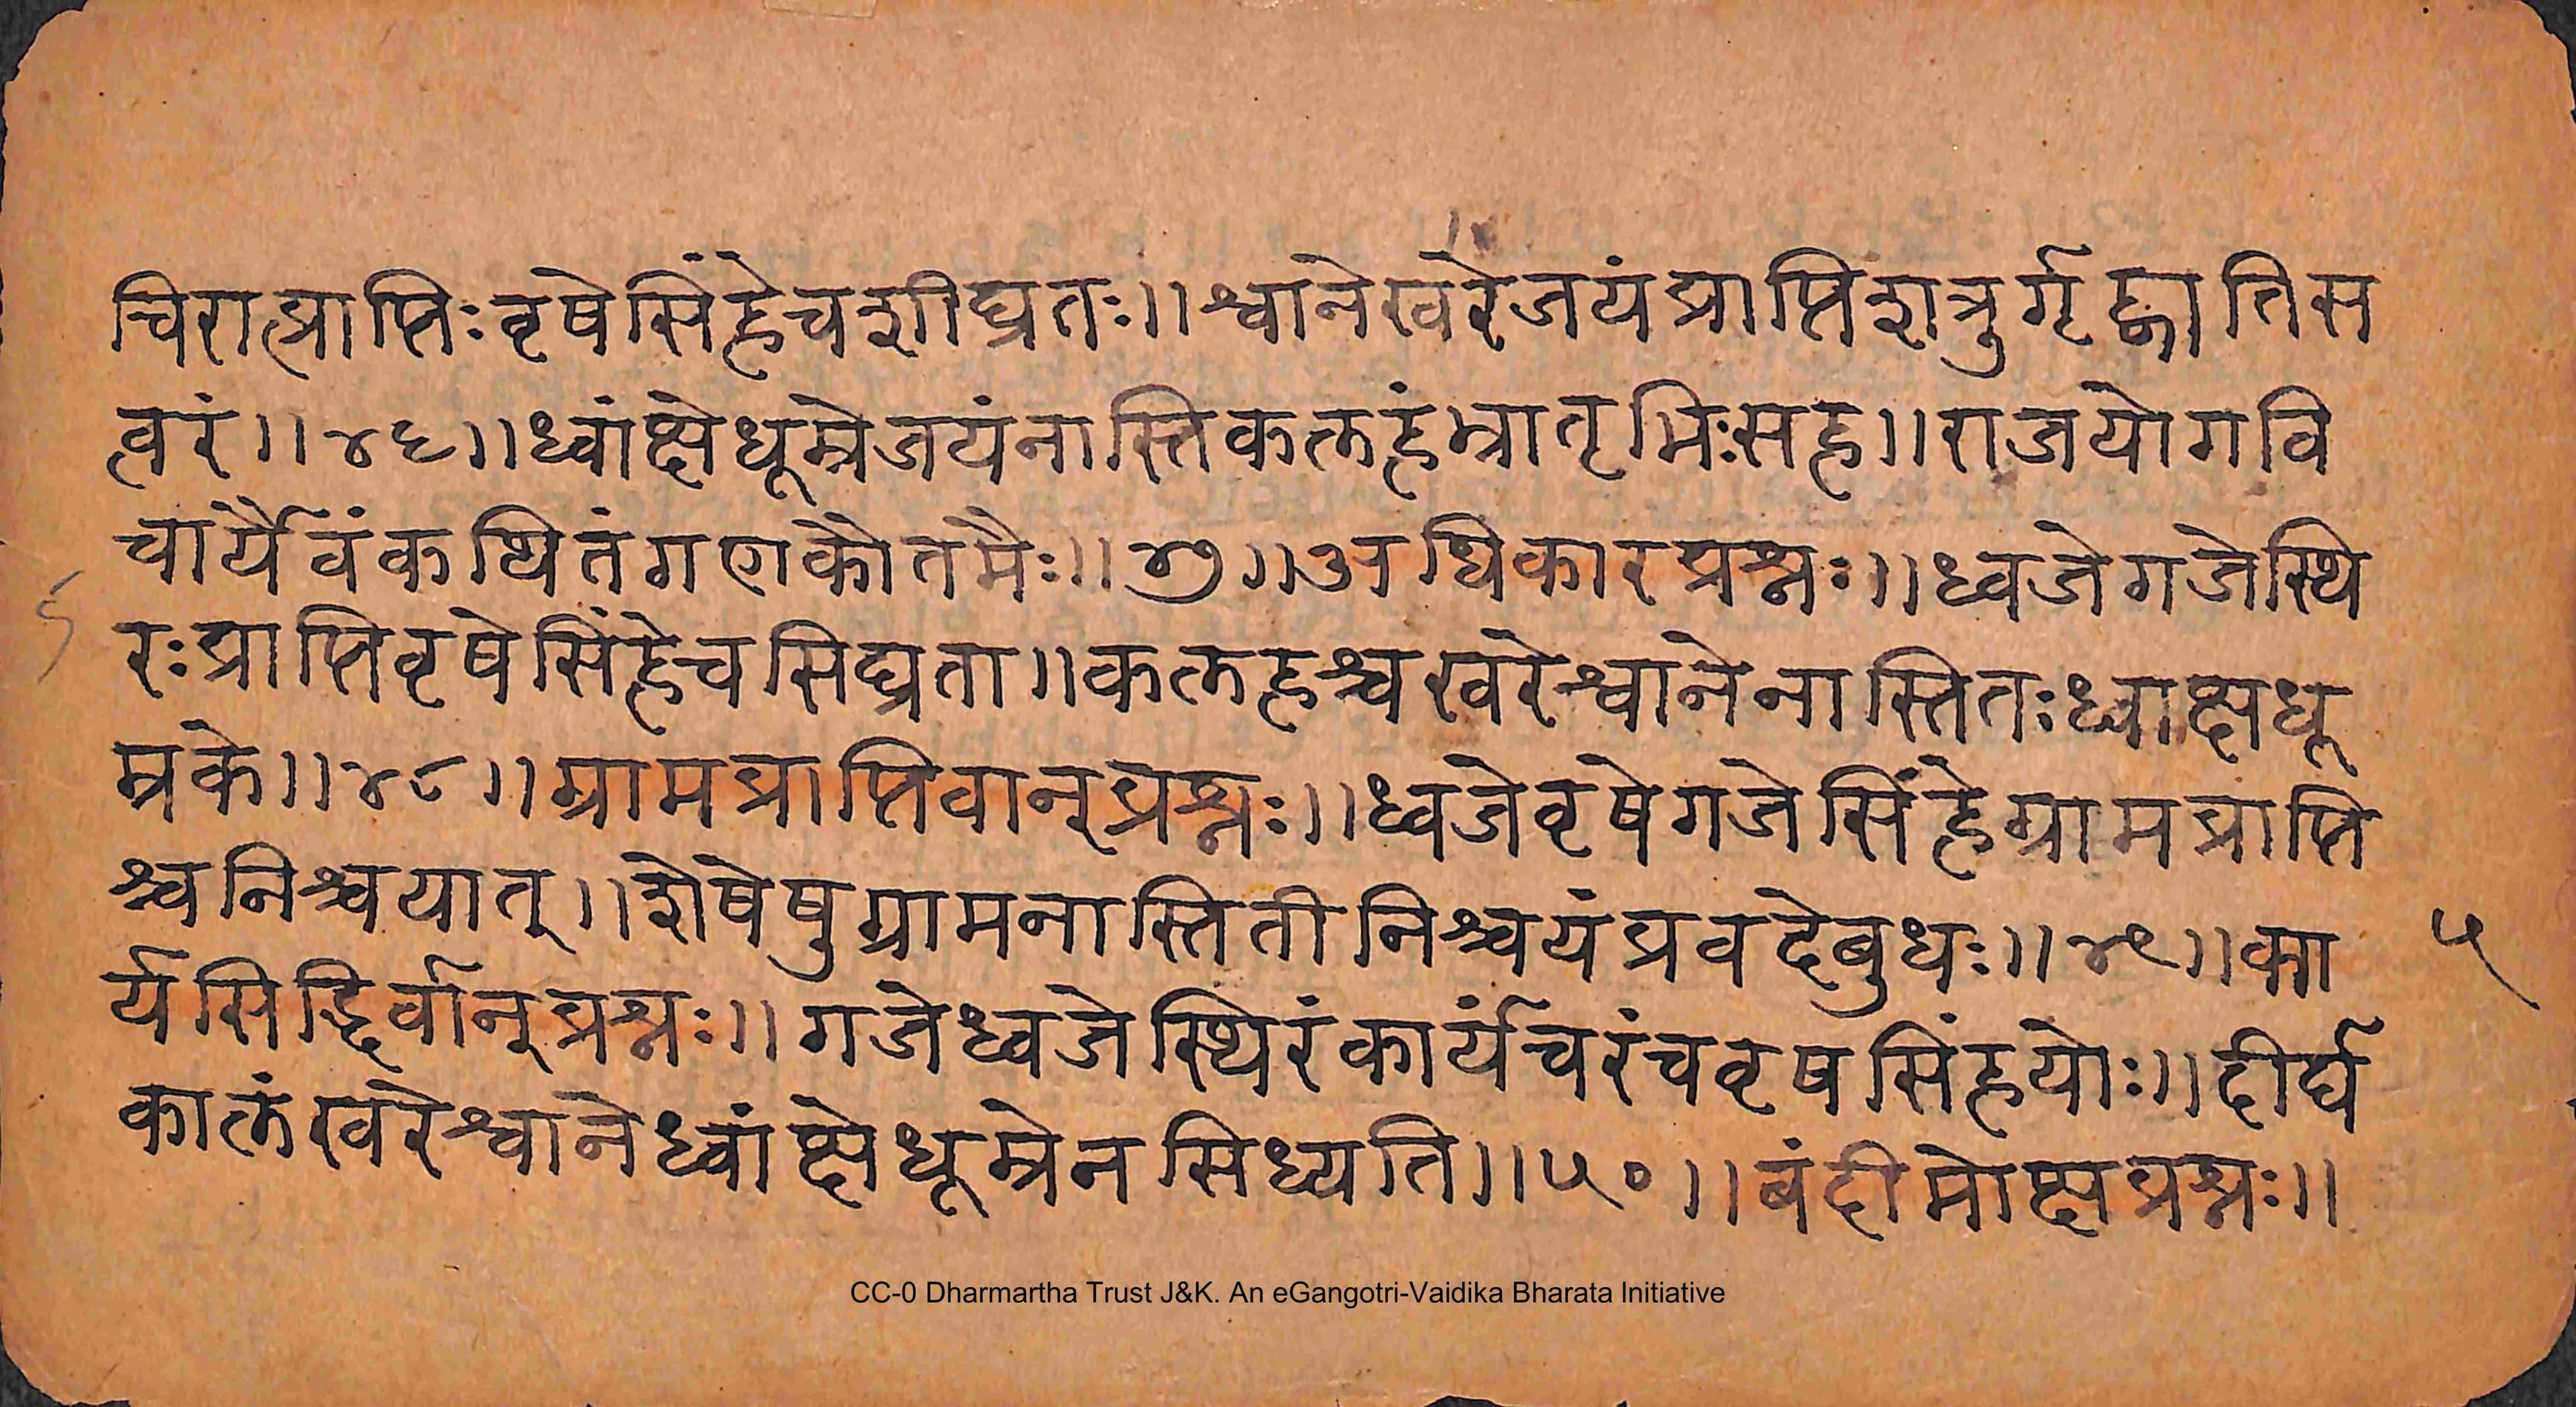 चिरात्प्राप्तिःवृषेसिंहेचशीघ्रतः॥श्वानेखरेजयंप्राप्तिशत्रुर्गृह्णातिस
त्वरं॥४६॥ध्वांक्षेधूम्रेजयंनास्तिकलहंभ्रातृभिःसह॥राजयोगवि
चार्यैवंकथितंगणकौतमैः॥४७॥अधिकारप्रश्नः॥ध्वजेगजेस्थि
रःप्राप्तिवृषेसिंहेचसिघ्रता॥कलहश्चखरेश्वानेनास्तितःध्वाक्षधू
म्रके॥४८॥ग्रामप्राप्तिवानप्रश्नः॥ध्वजेवृषेगजेसिंहेग्रामप्राप्ति
श्चनिश्चयात्॥शेषेषुग्रामनास्तितीनिश्चयंप्रवदेबुधः॥४९॥का
र्यसिद्धिर्वानप्रश्नः॥गजेध्वजेस्थिरंकार्यंचरंचवृषसिंहयोः॥दीर्घ
कालंखरेश्वानेध्वांक्षेधूम्रेनसिध्यति॥५०॥बंदीमोक्षप्रश्नः॥
५
CC-0 Dharmartha Trust J&K. An eGangotri-Vaidika Bharata Initiative